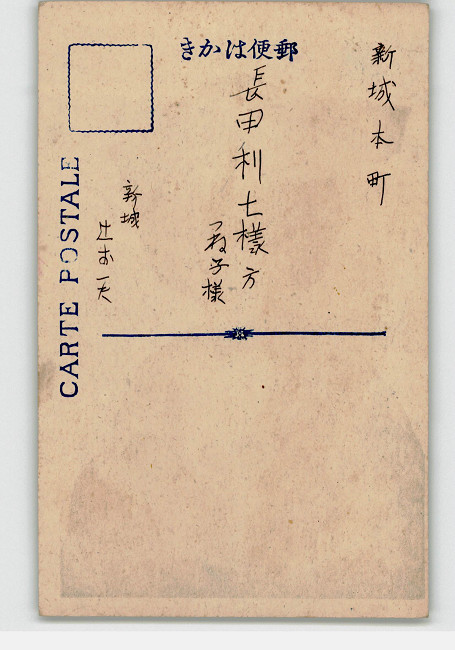 郵便はかき
新城本町
長田利七様方
つね子様
新城
辻お一夫
CARTE POSTALE